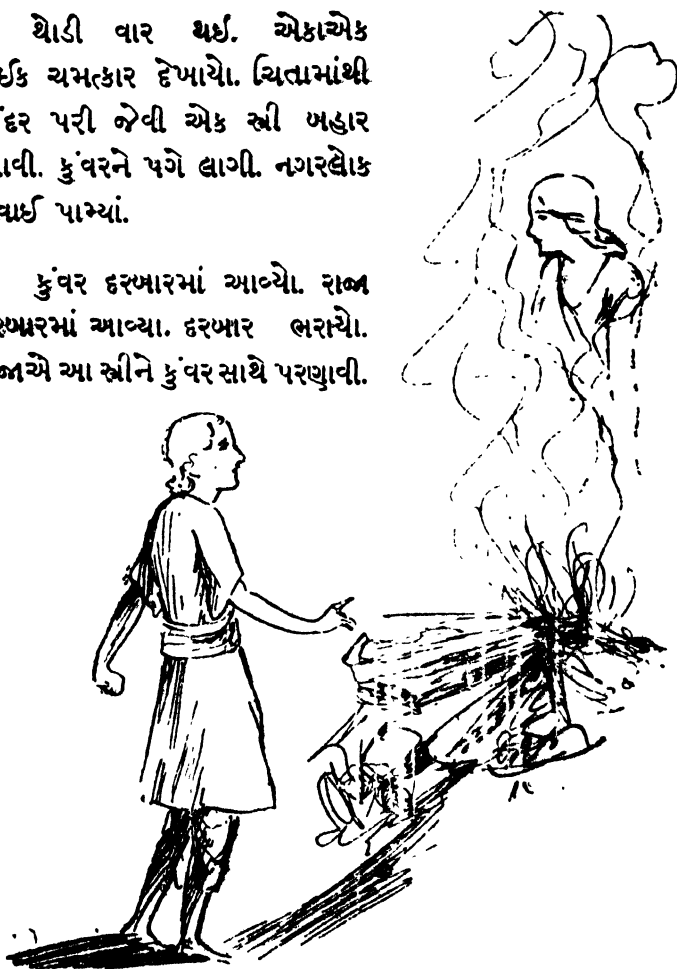 થોડી વાર થઈ. એકાએક
ચમત્કાર દેખાયો. ચિતામાંથી
પરી જેવી એક સ્ત્રી બહાર
કુંવરને પગે લાગી. નગરલોક
પામ્યાં.
કુંવર દરબારમાં આવ્યો. રાજા
દરબારમાં આવ્યા. દરબાર ભરાયો.
આ સ્ત્રીને કુંવર સાથે પરણાવી.